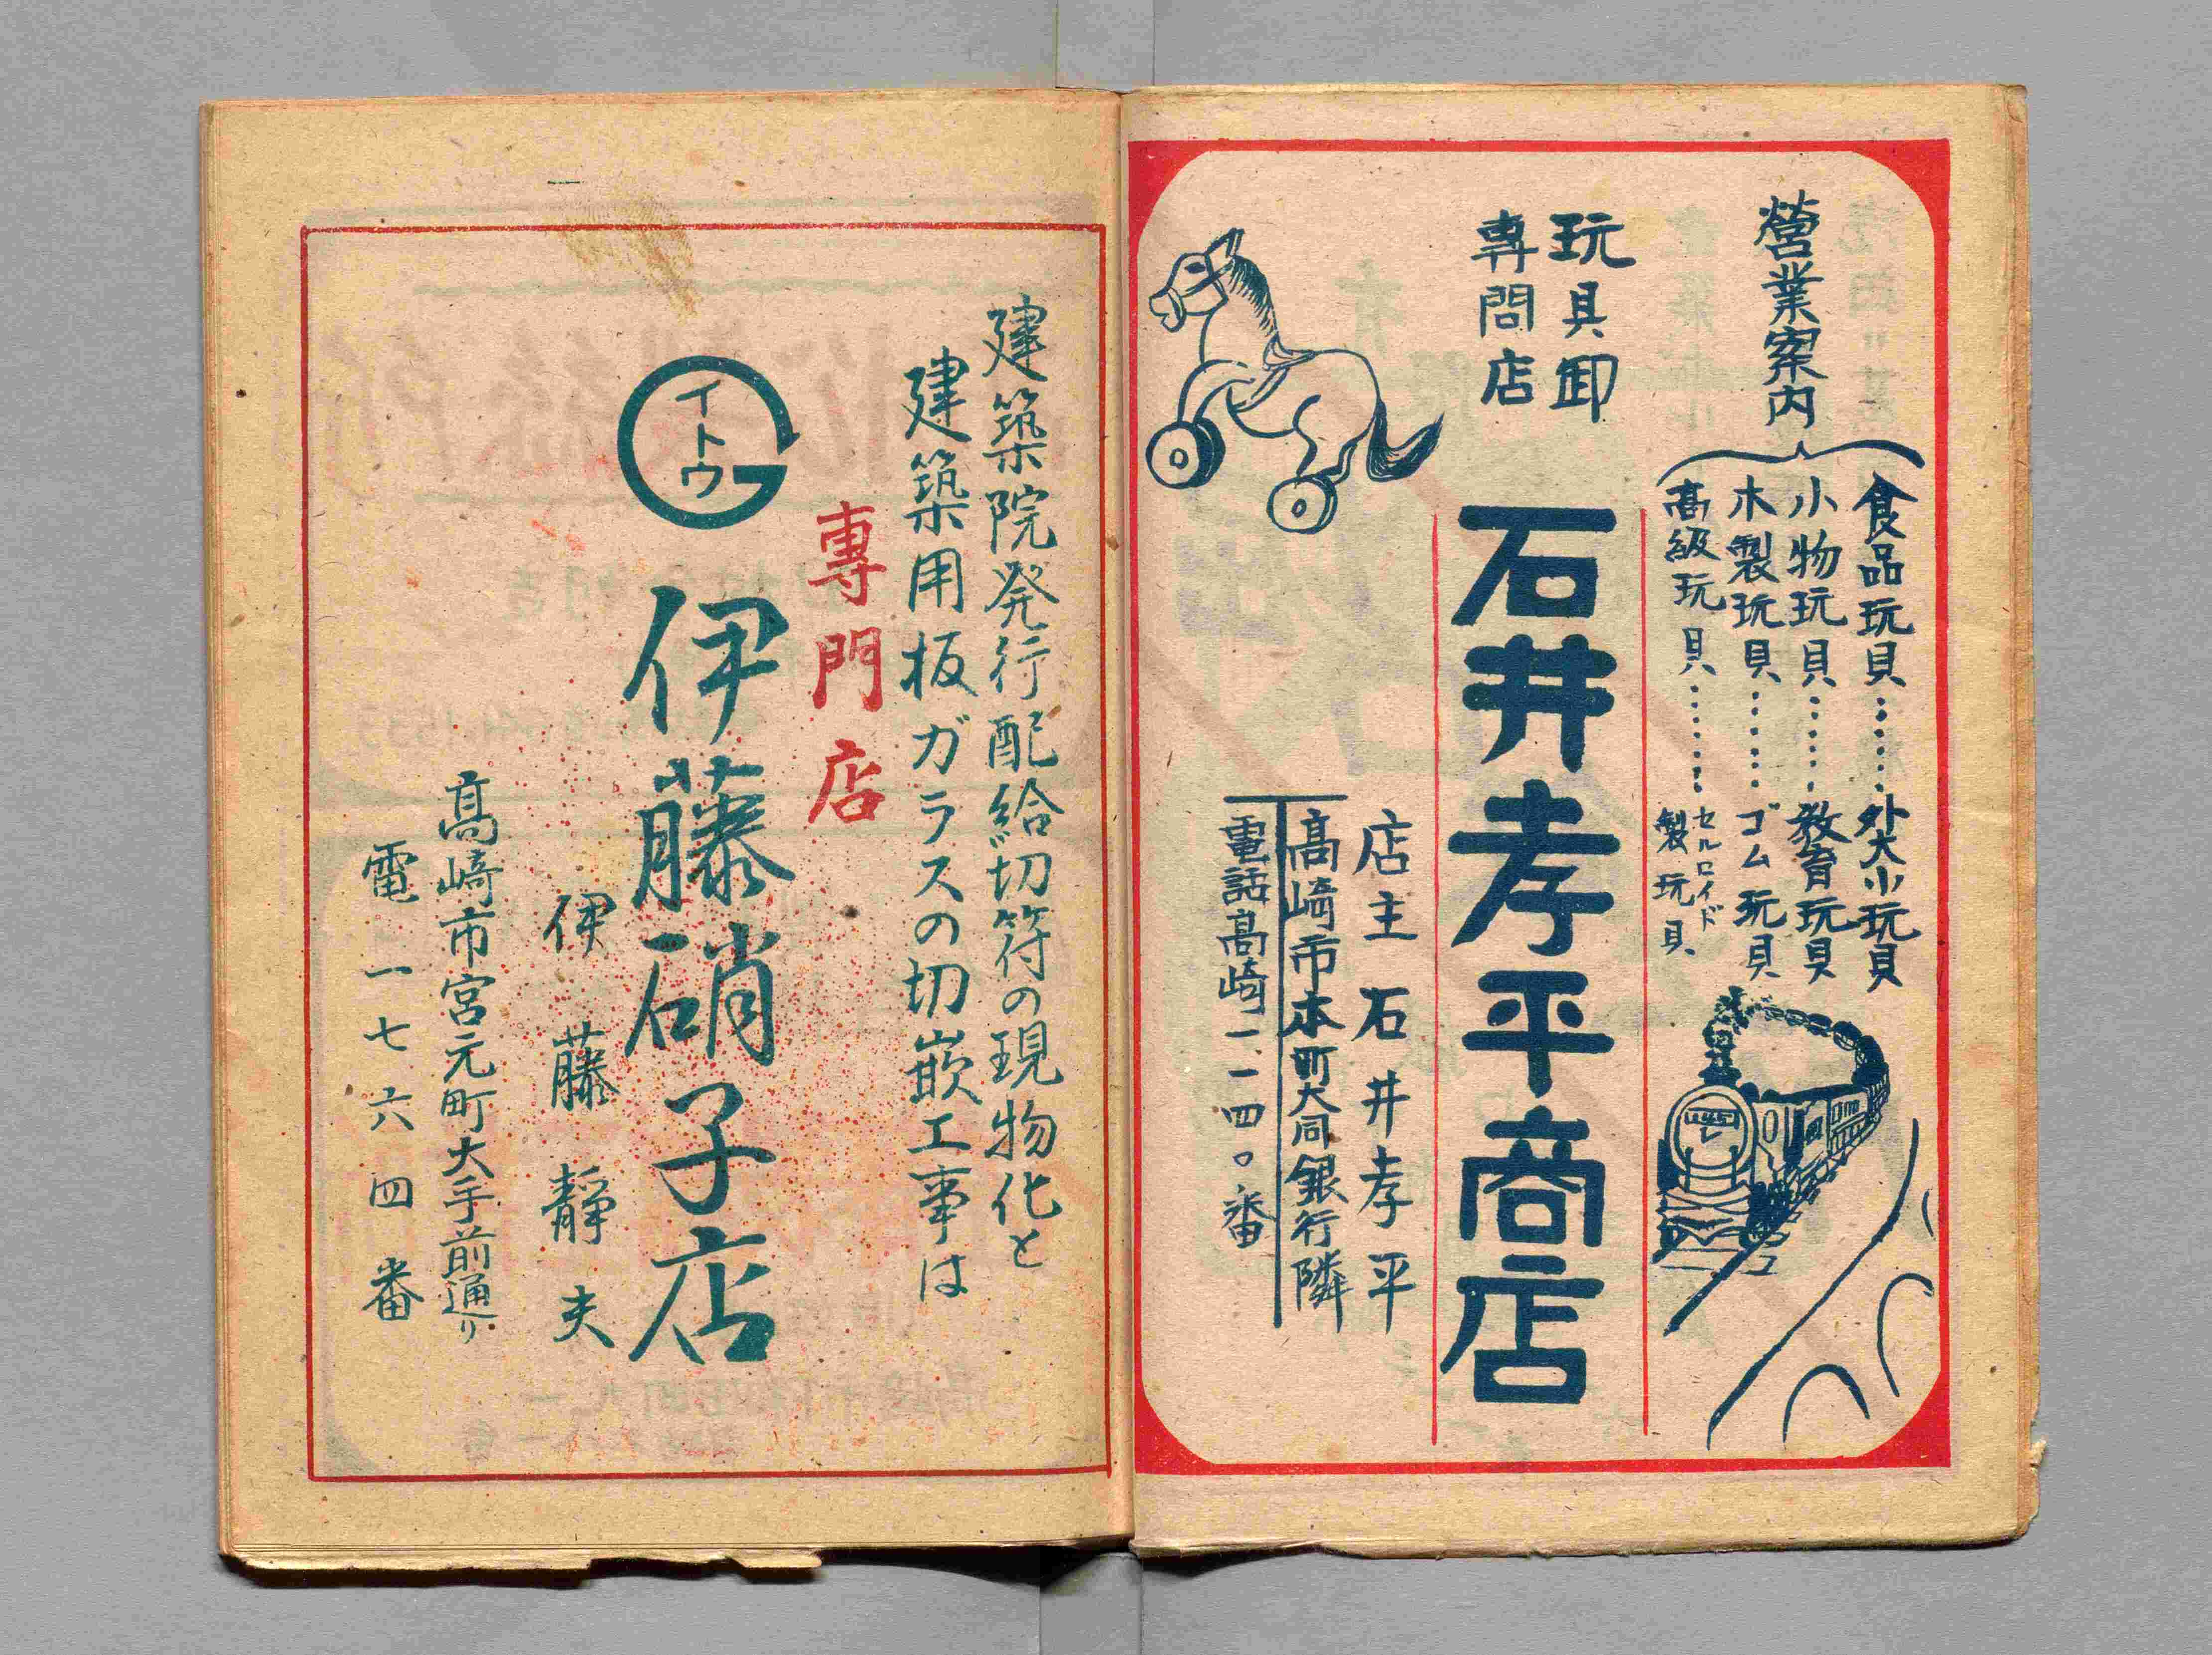 營業案内
食品玩具……外大小玩具
小物玩具……教育玩具
木製玩具……ゴム玩具
高級玩具……セルロイド
製玩具
玩具卸
専問店
石井孝平商店
店主 石井孝平
髙崎市本町大同銀行隣
電話髙崎一一四〇番
建築院発行配給切符の現物化と
建築用板ガラスの切嵌工事は
專門店
イトウ
伊藤硝子店
伊藤靜夫
髙崎市宮元町大手前通り
電一七六四番